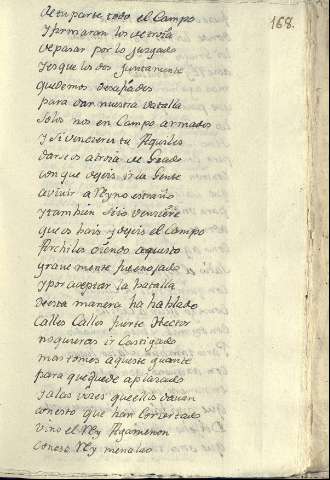 168.
de tu parte, todo el Campo
y firmaran los de troia
de pasar por lo juzgado
y es que los dos juntamente
quedemos desafiados
para dar nuestra batalla
solos nos en Campo armados
y si vencieres tu Aquiles
daros a troia de Grado
con que dejeis ir la Gente
a vivir a Reyno estraño
y tambien si io venciere
que os hais y dejeis el Campo
Archiles oiendo aquesto
grave mente fue enojado
y por aceptar la batalla
desta manera ha hablado
Calles Calles fuerte Hector
no quieras ir Castigado
mas tomes aqueste guante
para que quede aplazado
y a las voces que ellos davan
con esto que han Concertado
vino el Rey Agamenon
con ese Rey menalao